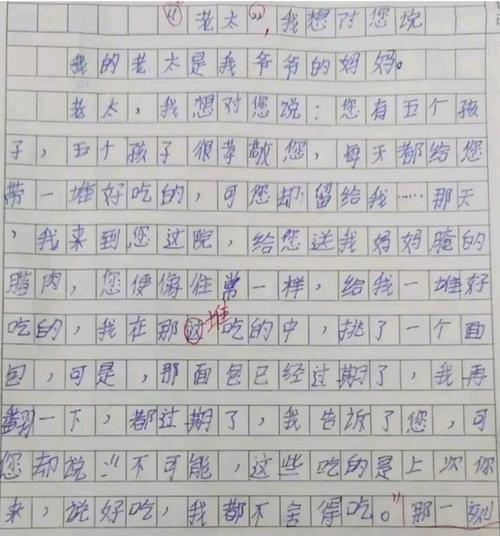 “老太”，我想对您说
我的老太是我爷爷的妈妈。
老太，我想对您说：您有五个孩
子，五个孩子很孝敬您，每天都给您
带一堆好吃的，可您却留给我……那天
，我来到您过院，给您送我妈妈腌的
腊肉，您便像往常一样，给我一堆好
吃的，我在那边堆吃的中，挑了一个面
包，可是，那面包已经过期了，我再
翻一下，都过期了，我告诉了您，可
您却说：“不可能，这些吃的是上次你
来，说好吃，我都不舍得吃。”那一刻